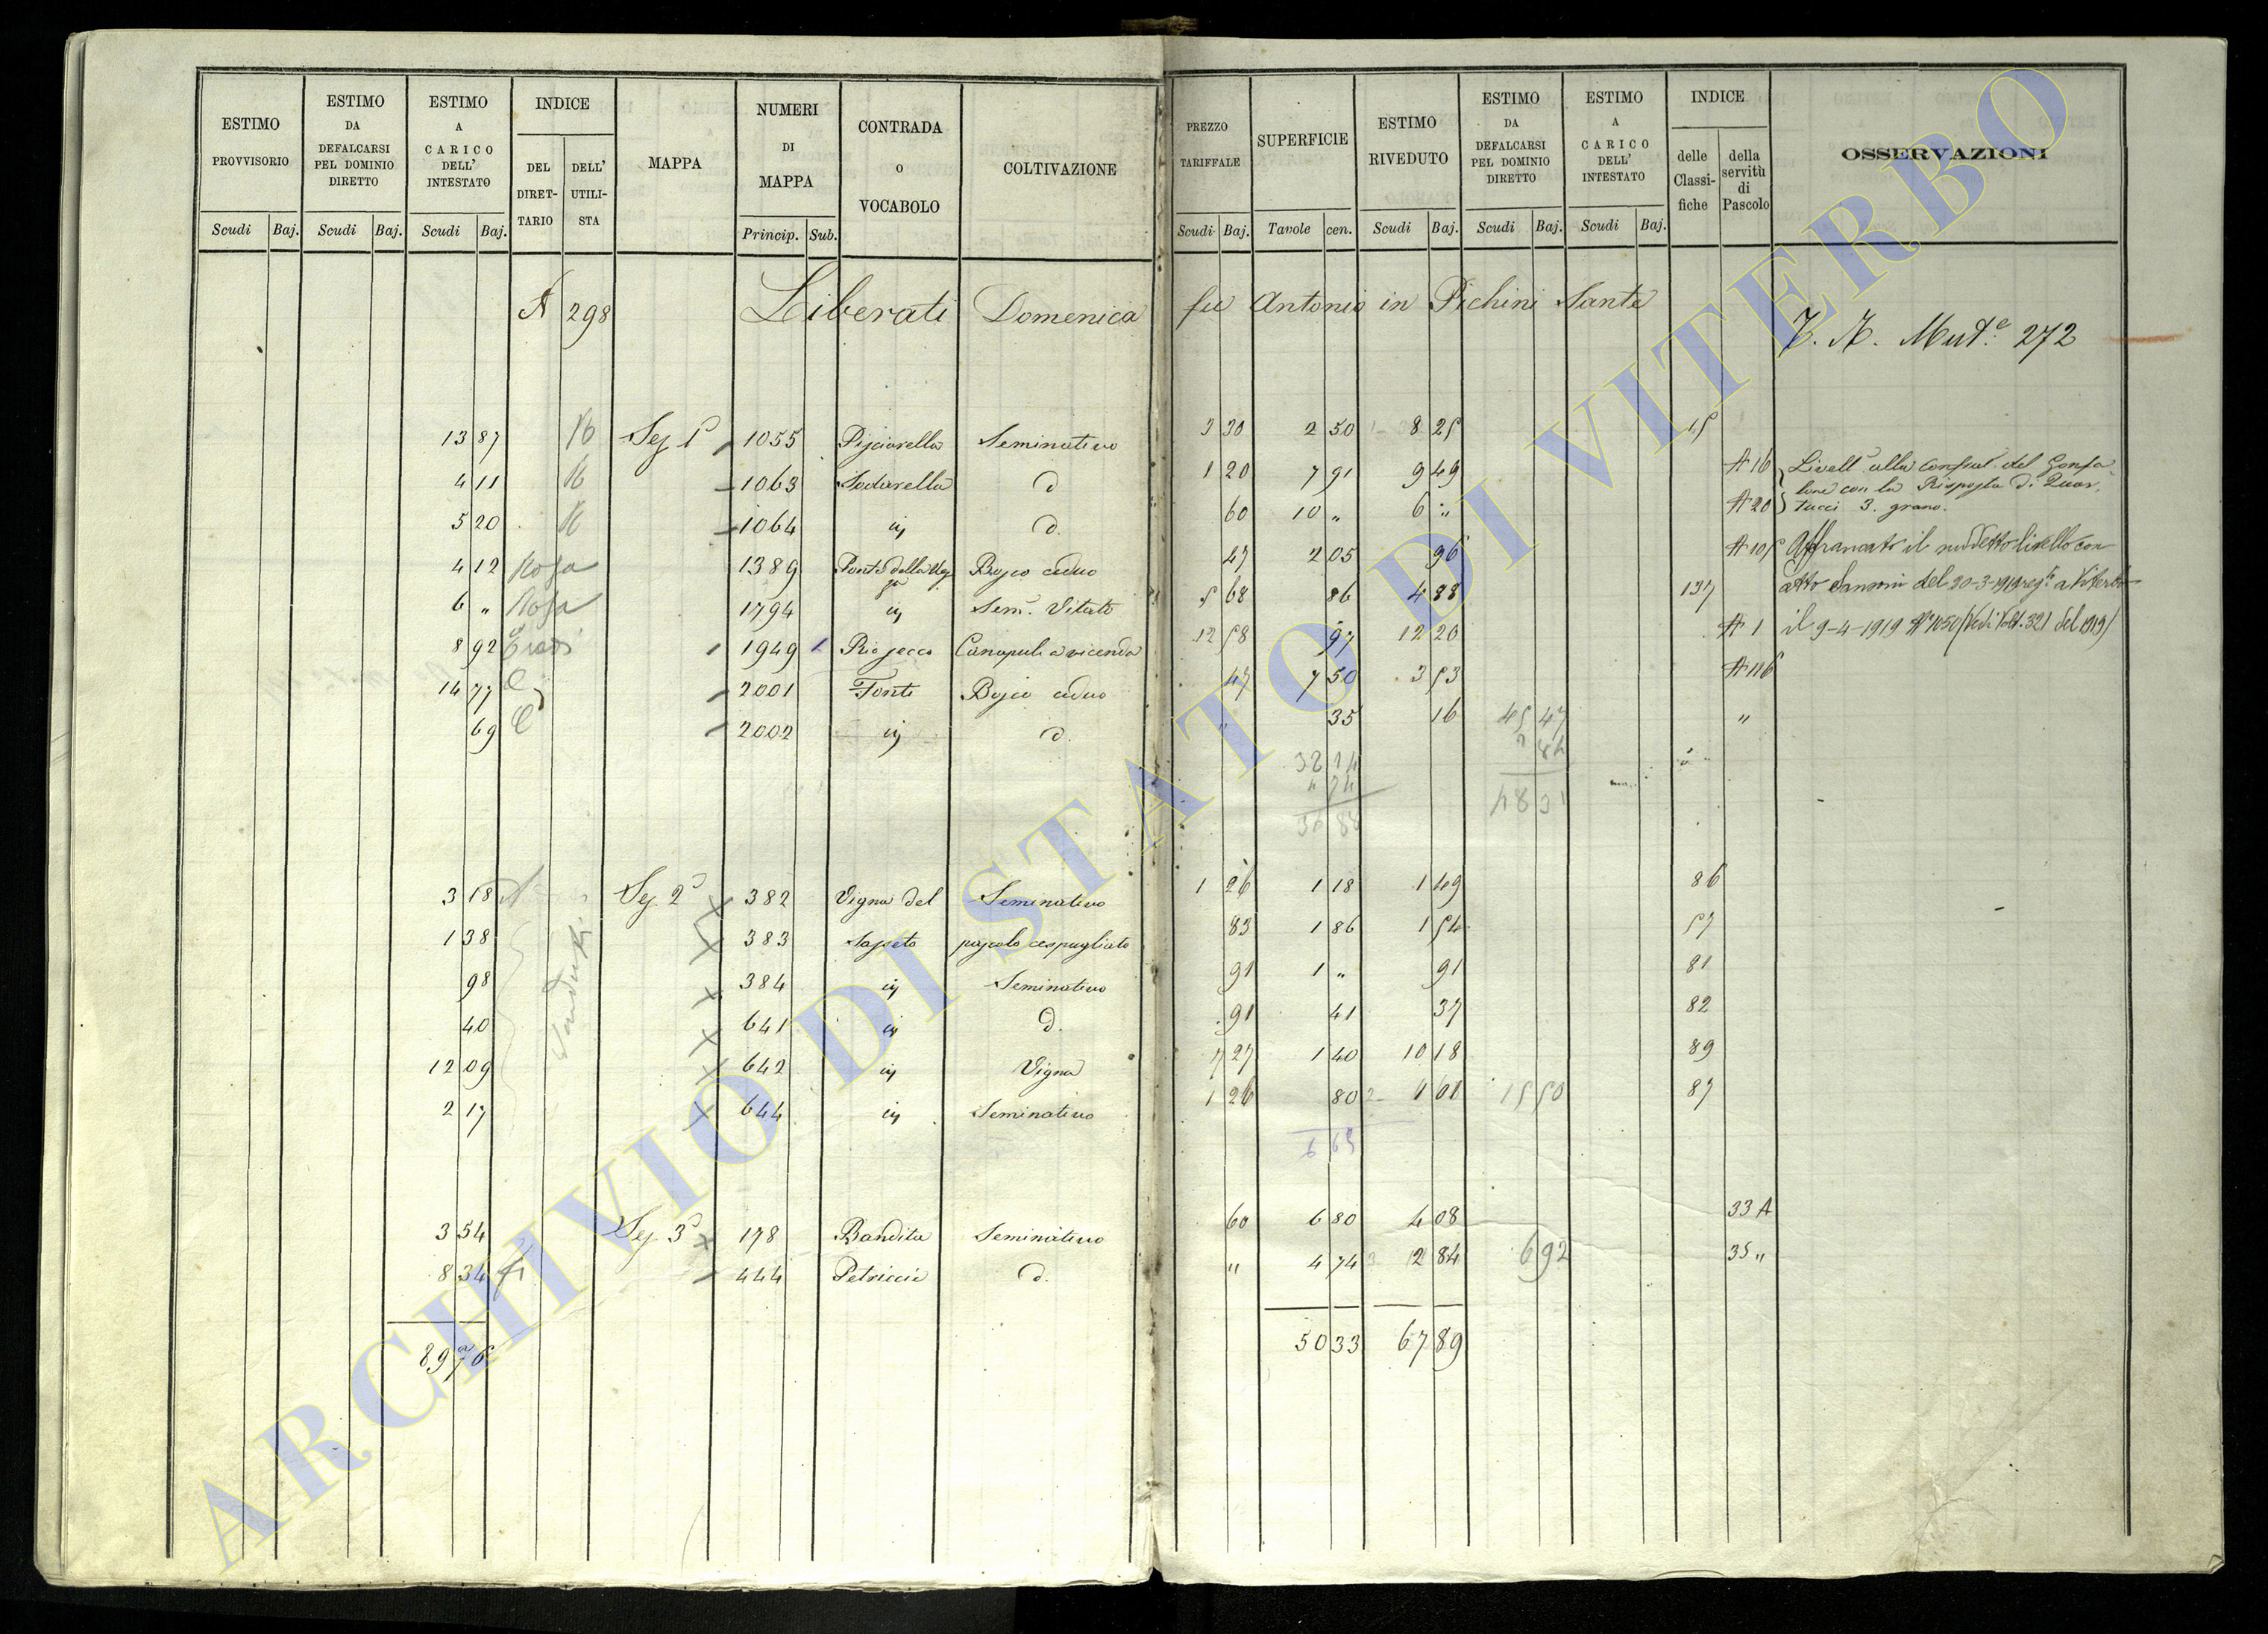 ESTIMO PROVVISORIO
ESTIMO DA DEFALCARSI PEL DOMINIO DIRETTO
ESTIMO A CARICO DELL' INTESTATO
INDICE
DEL DIRET-TARIO
DELL' UTILI-STA
MAPPA
NUMERI DI MAPPA
CONTRADA O VOCABOLO
COLTIVAZIONE
PREZZO TARIFFALE
SUPERFICIE
ESTIMO RIVEDUTO
ESTIMO DA DEFALCARSI PEL DOMINIO DIRETTO
ESTIMO A CARICO DELL' INTESTATO
INDICE
delle Classi-fiche
della servitù di Pascolo
OSSERVAZIONI
Scudi Baj. Scudi Baj. Scudi Baj. Princip. Sub. Scudi Baj. Tavole cen. Scudi Baj. Scudi Baj. Scudi Baj.
A 298 Liberati Domenica fu Antonio in Pichini Sante
Mut.e 272
13 87 Sez 1ª 1055 Pisciarella Seminativo 3 30 2 50 8 25 15
4 11 1063 Sodarella d 1 20 7 91 9 49 A 16 Livell.
5 20 1064 iy d. 60 10 " 6 " A 20 3. grano.
4 12 Rosa 1389 Bosco ceduo 47 2 05 96 A 105 Affrancato il livello con
6 " Rosa 1794 iy Sem. Vitato 5 68 86 4 88 137 atto del 20-3-1919 a Viterbo
8 92 1949 Rio secco Canapule a vicenda 12 58 97 12 20 A 1 il 9-4-1919 Nº 1050 (Vedi Volt. 321 del 1919)
14 77 2001 Fonte Bosco ceduo 47 7 50 3 53 A 116
69 2002 iy d. " 35 16 45 47 "
3 18 Sez 2ª 382 Vigna del Seminativo 1 26 1 18 1 49 86
1 38 383 Sasseto pascolo cespugliato 83 1 86 1 54 57
98 384 iy Seminativo 91 1 " 91 81
40 641 iy d. 91 41 37 82
12 09 642 iy Vigna 7 27 1 40 10 18 89
2 17 644 iy Seminativo 1 26 80 1 01 15 50 87
6 65
3 54 Sez 3ª 178 Bandita Seminativo 60 6 80 4 08 33 A
8 34 444 Petriccie d. " 4 74 2 84 6 92 35 "
89 76 50 33 67 89
ARCHIVIO DI STATO DI VITERBO